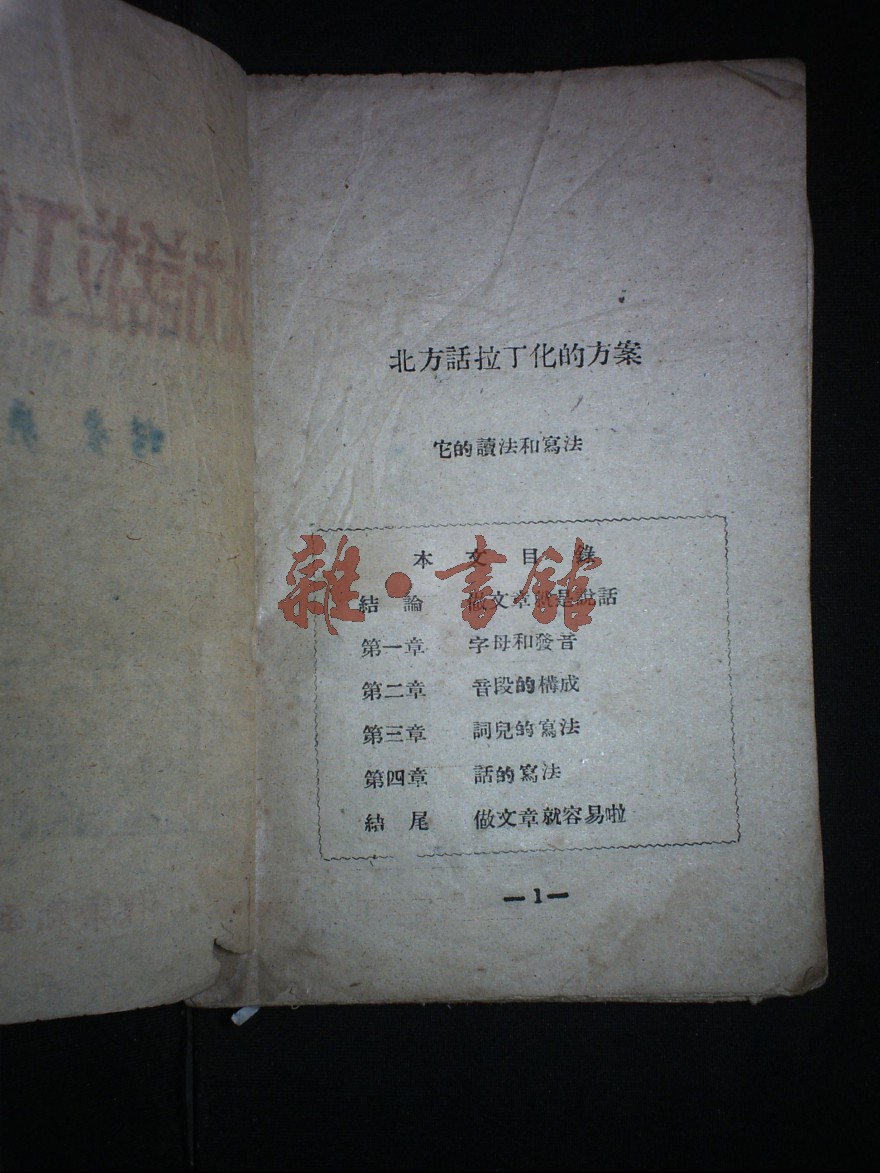 北方話拉丁化的方案
它的讀法和寫法
本文目錄
結論 做文章就是說話
第一章 字母和發音
第二章 音段的構成
第三章 詞兒的寫法
第四章 話的寫法
結尾 做文章就容易啦
—1—
雜·書館